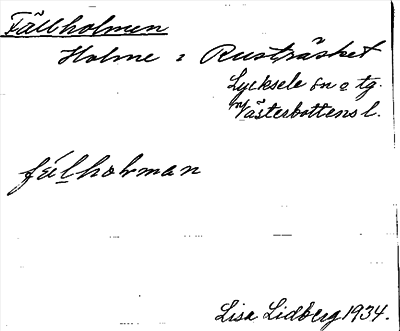 Fällholmen
Holme i Rusträsket
Lycksele sn o tg.
Västerbottens l.
fúlholman
Lisa Lidberg 1934.